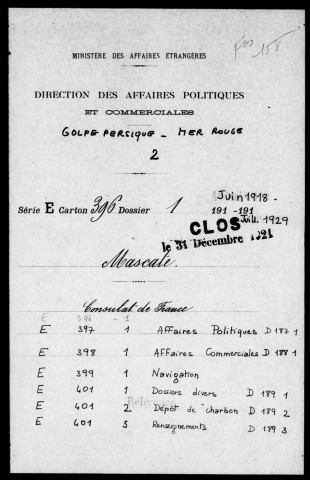 Fos 158
MINISTÈRE DES AFFAIRES ÉTRANGÈRES
DIRECTION DES AFFAIRES POLITIQUES
ET COMMERCIALES
GOLFE PERSIQUE - MER ROUGE
2
Juin 1918 -
Série E Carton 396 Dossier 1 191 -191
Juil. 1929
CLOS
le 31 Décembre 1921
Mascate.
Consulat de France
E 396 - 1
E 397 1 Affaires Politiques D 187 1
E 398 1 Affaires Commerciales D 188 1
E 399 1 Navigation
E 401 1 Dossiers divers D 189 1
E 401 2 Dépôt de charbon D 189 2
E 401 3 Renseignements D 189 3